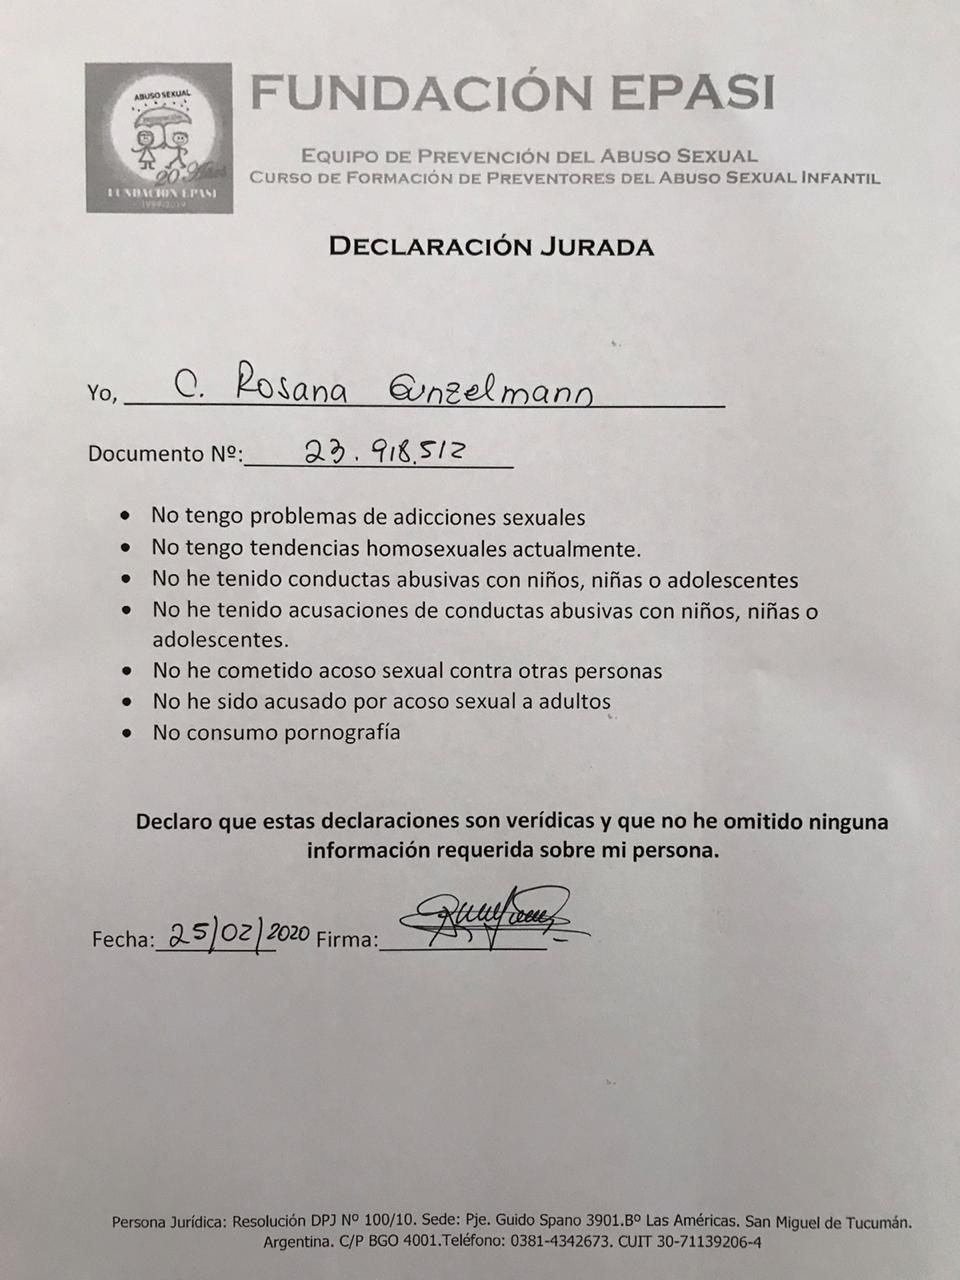 ABUSO SEXUAL
PREVENCIÓN
20 Años
FUNDACION EPASI
1999-2019
FUNDACIÓN EPASI
EQUIPO DE PREVENCIÓN DEL ABUSO SEXUAL
CURSO DE FORMACIÓN DE PREVENTORES DEL ABUSO SEXUAL INFANTIL
DECLARACIÓN JURADA
Yo, C. Rosana Gunzelmann
Documento Nº: 23.918.512
• No tengo problemas de adicciones sexuales
• No tengo tendencias homosexuales actualmente.
• No he tenido conductas abusivas con niños, niñas o adolescentes
• No he tenido acusaciones de conductas abusivas con niños, niñas o
adolescentes.
• No he cometido acoso sexual contra otras personas
• No he sido acusado por acoso sexual a adultos
• No consumo pornografía
Declaro que estas declaraciones son verídicas y que no he omitido ninguna
información requerida sobre mi persona.
Fecha: 25/02/2020 Firma:
Persona Jurídica: Resolución DPJ Nº 100/10. Sede: Pje. Guido Spano 3901.Bº Las Américas. San Miguel de Tucumán.
Argentina. C/P BGO 4001.Teléfono: 0381-4342673. CUIT 30-71139206-4